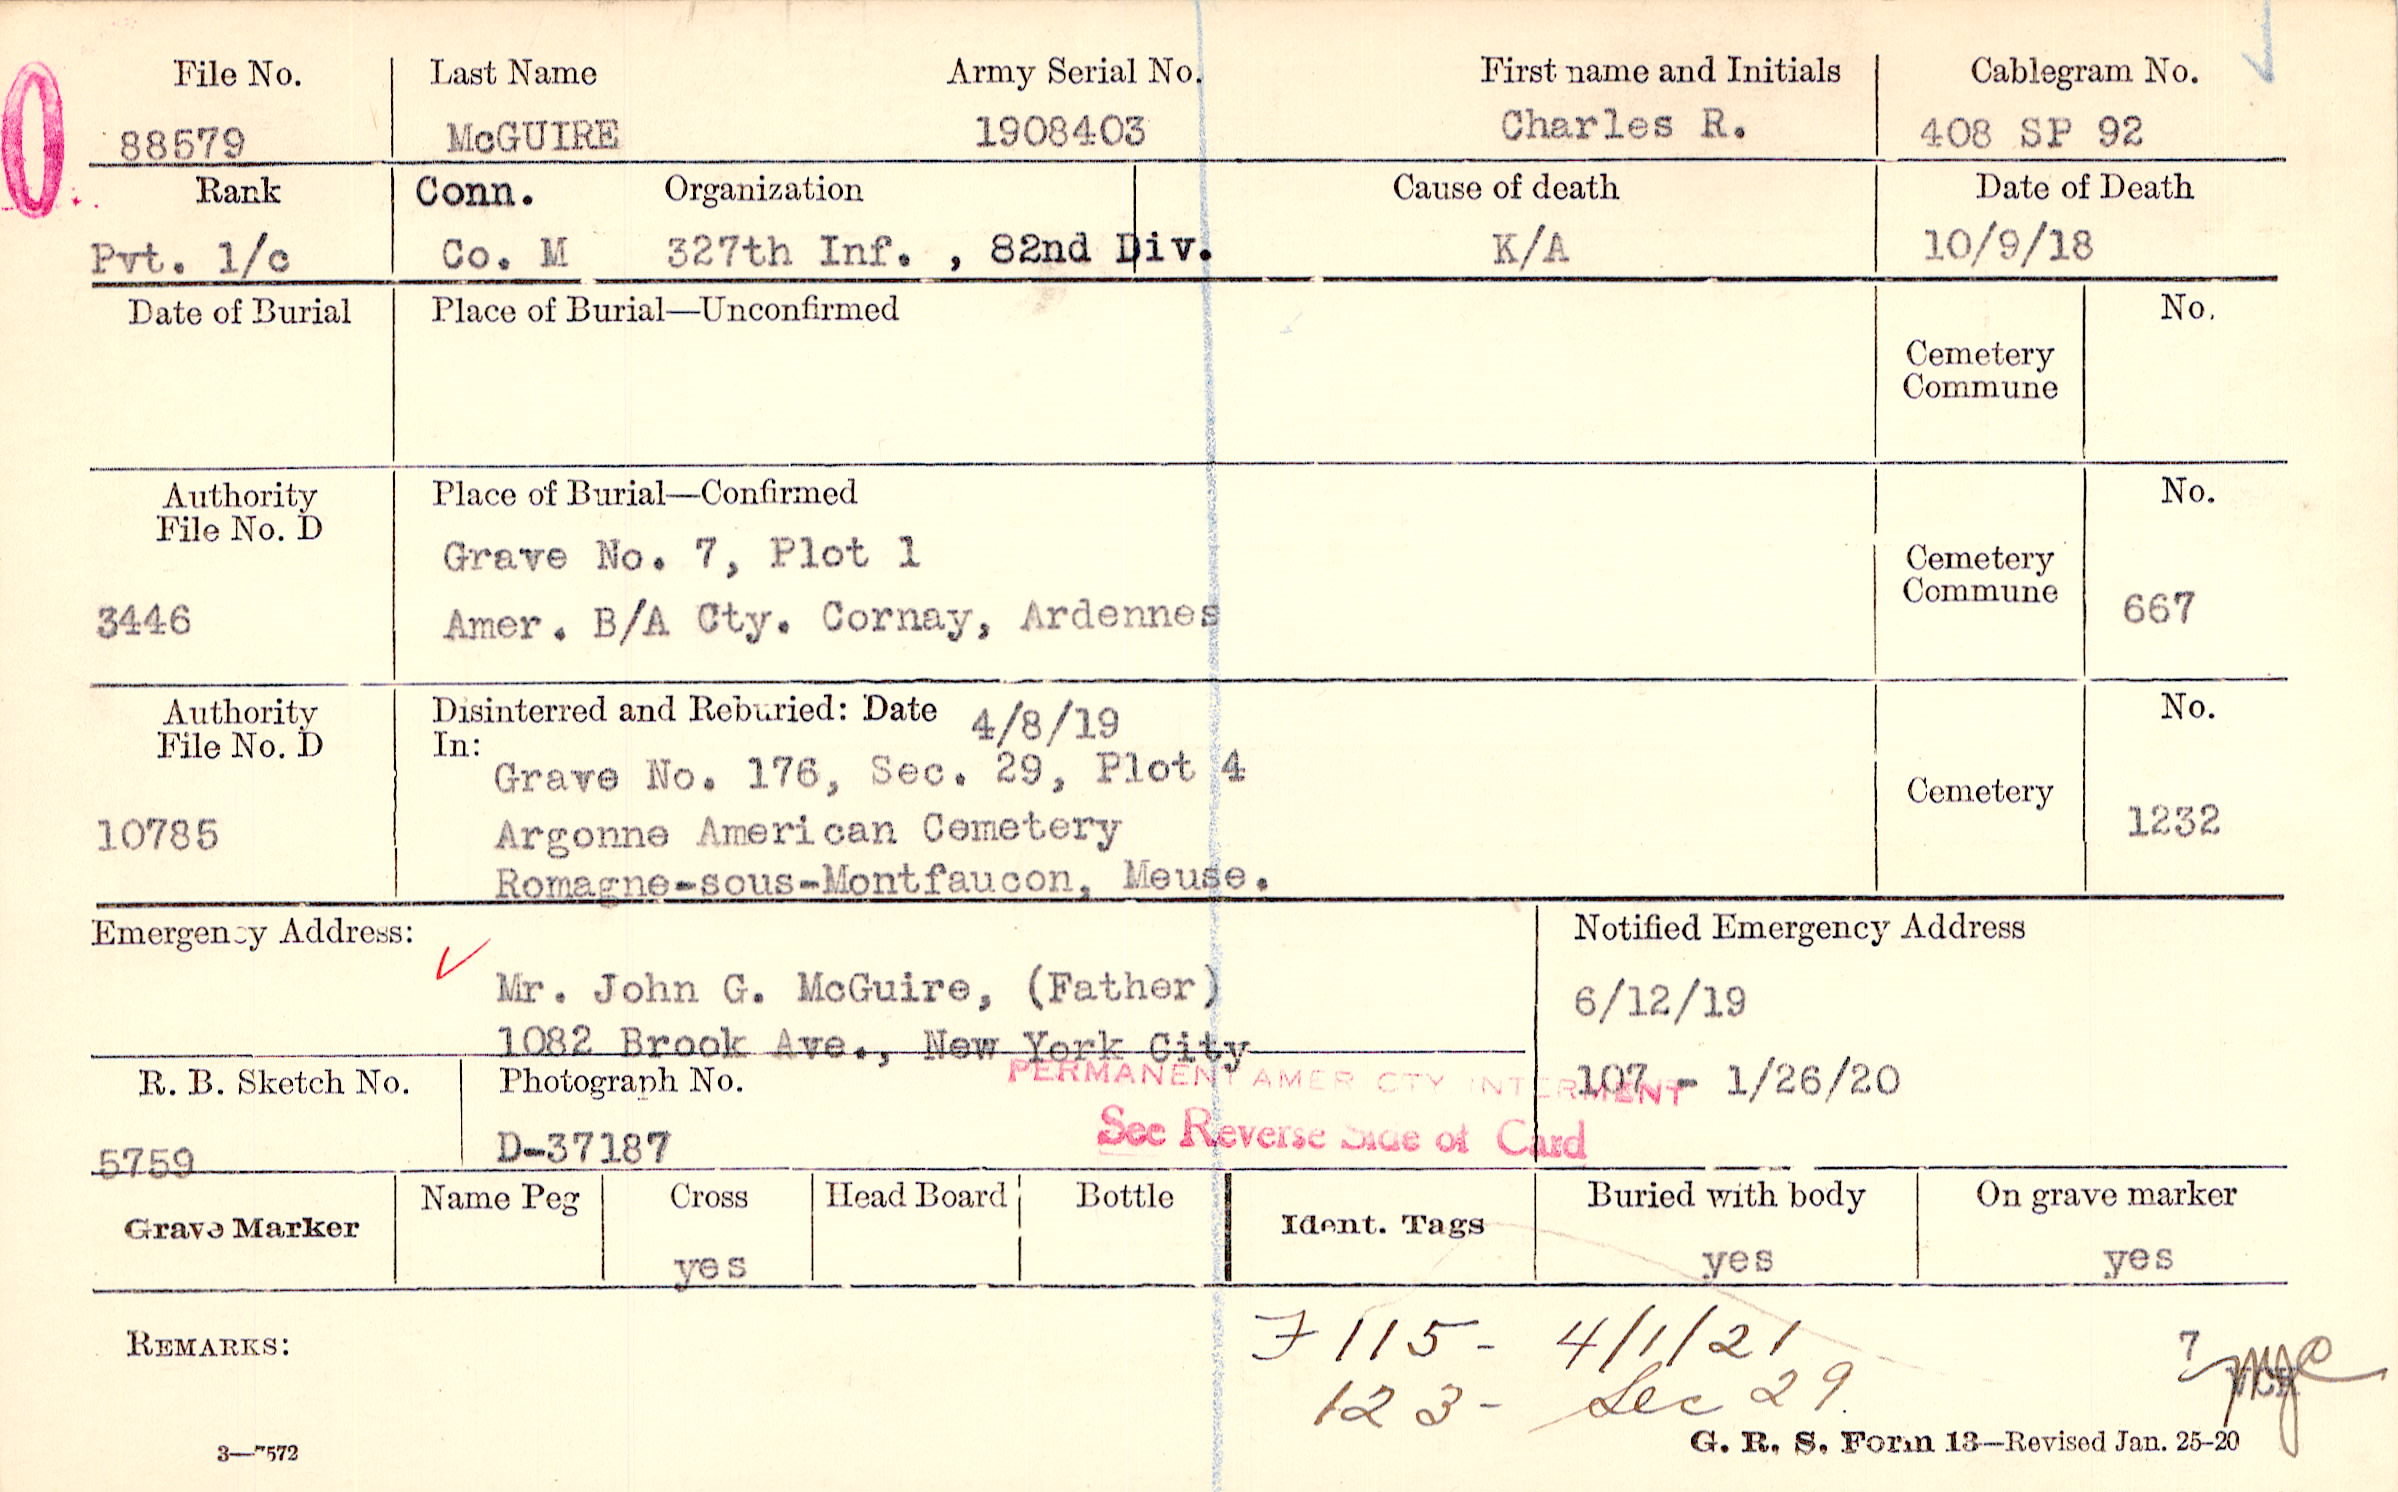 File No. Last Name Army Serial No. First name and Initials Cablegram No.
88579 McGUIRE 1908403 Charles R. 408 SP 92
Rank Conn. Organization Cause of death Date of Death
Pvt. 1/c Co. M 327th Inf. , 82nd Div. K/A 10/9/18
Date of Burial Place of Burial—Unconfirmed No.
Cemetery
Commune
Authority Place of Burial—Confirmed No.
File No. D
Grave No. 7, Plot 1 Cemetery
Commune
3446 Amer. B/A Cty. Cornay, Ardennes 667
Authority Disinterred and Reburied: Date 4/8/19 No.
File No. D In:
Grave No. 176, Sec. 29, Plot 4
Cemetery
10785 Argonne American Cemetery 1232
Romagne-sous-Montfaucon, Meuse.
Emergency Address: Notified Emergency Address
Mr. John G. McGuire, (Father) 6/12/19
1082 Brook Ave., New York City
R. B. Sketch No. Photograph No. PERMANENT AMER CTY INTERMENT 107 - 1/26/20
See Reverse Side of Card
5759 D-37187
Grave Marker Name Peg Cross Head Board Bottle Ident. Tags Buried with body On grave marker
yes yes yes
REMARKS: F 115 - 4/1/21 7
123 - Sec 29
3—7572 G. R. S. Form 13—Revised Jan. 25-20